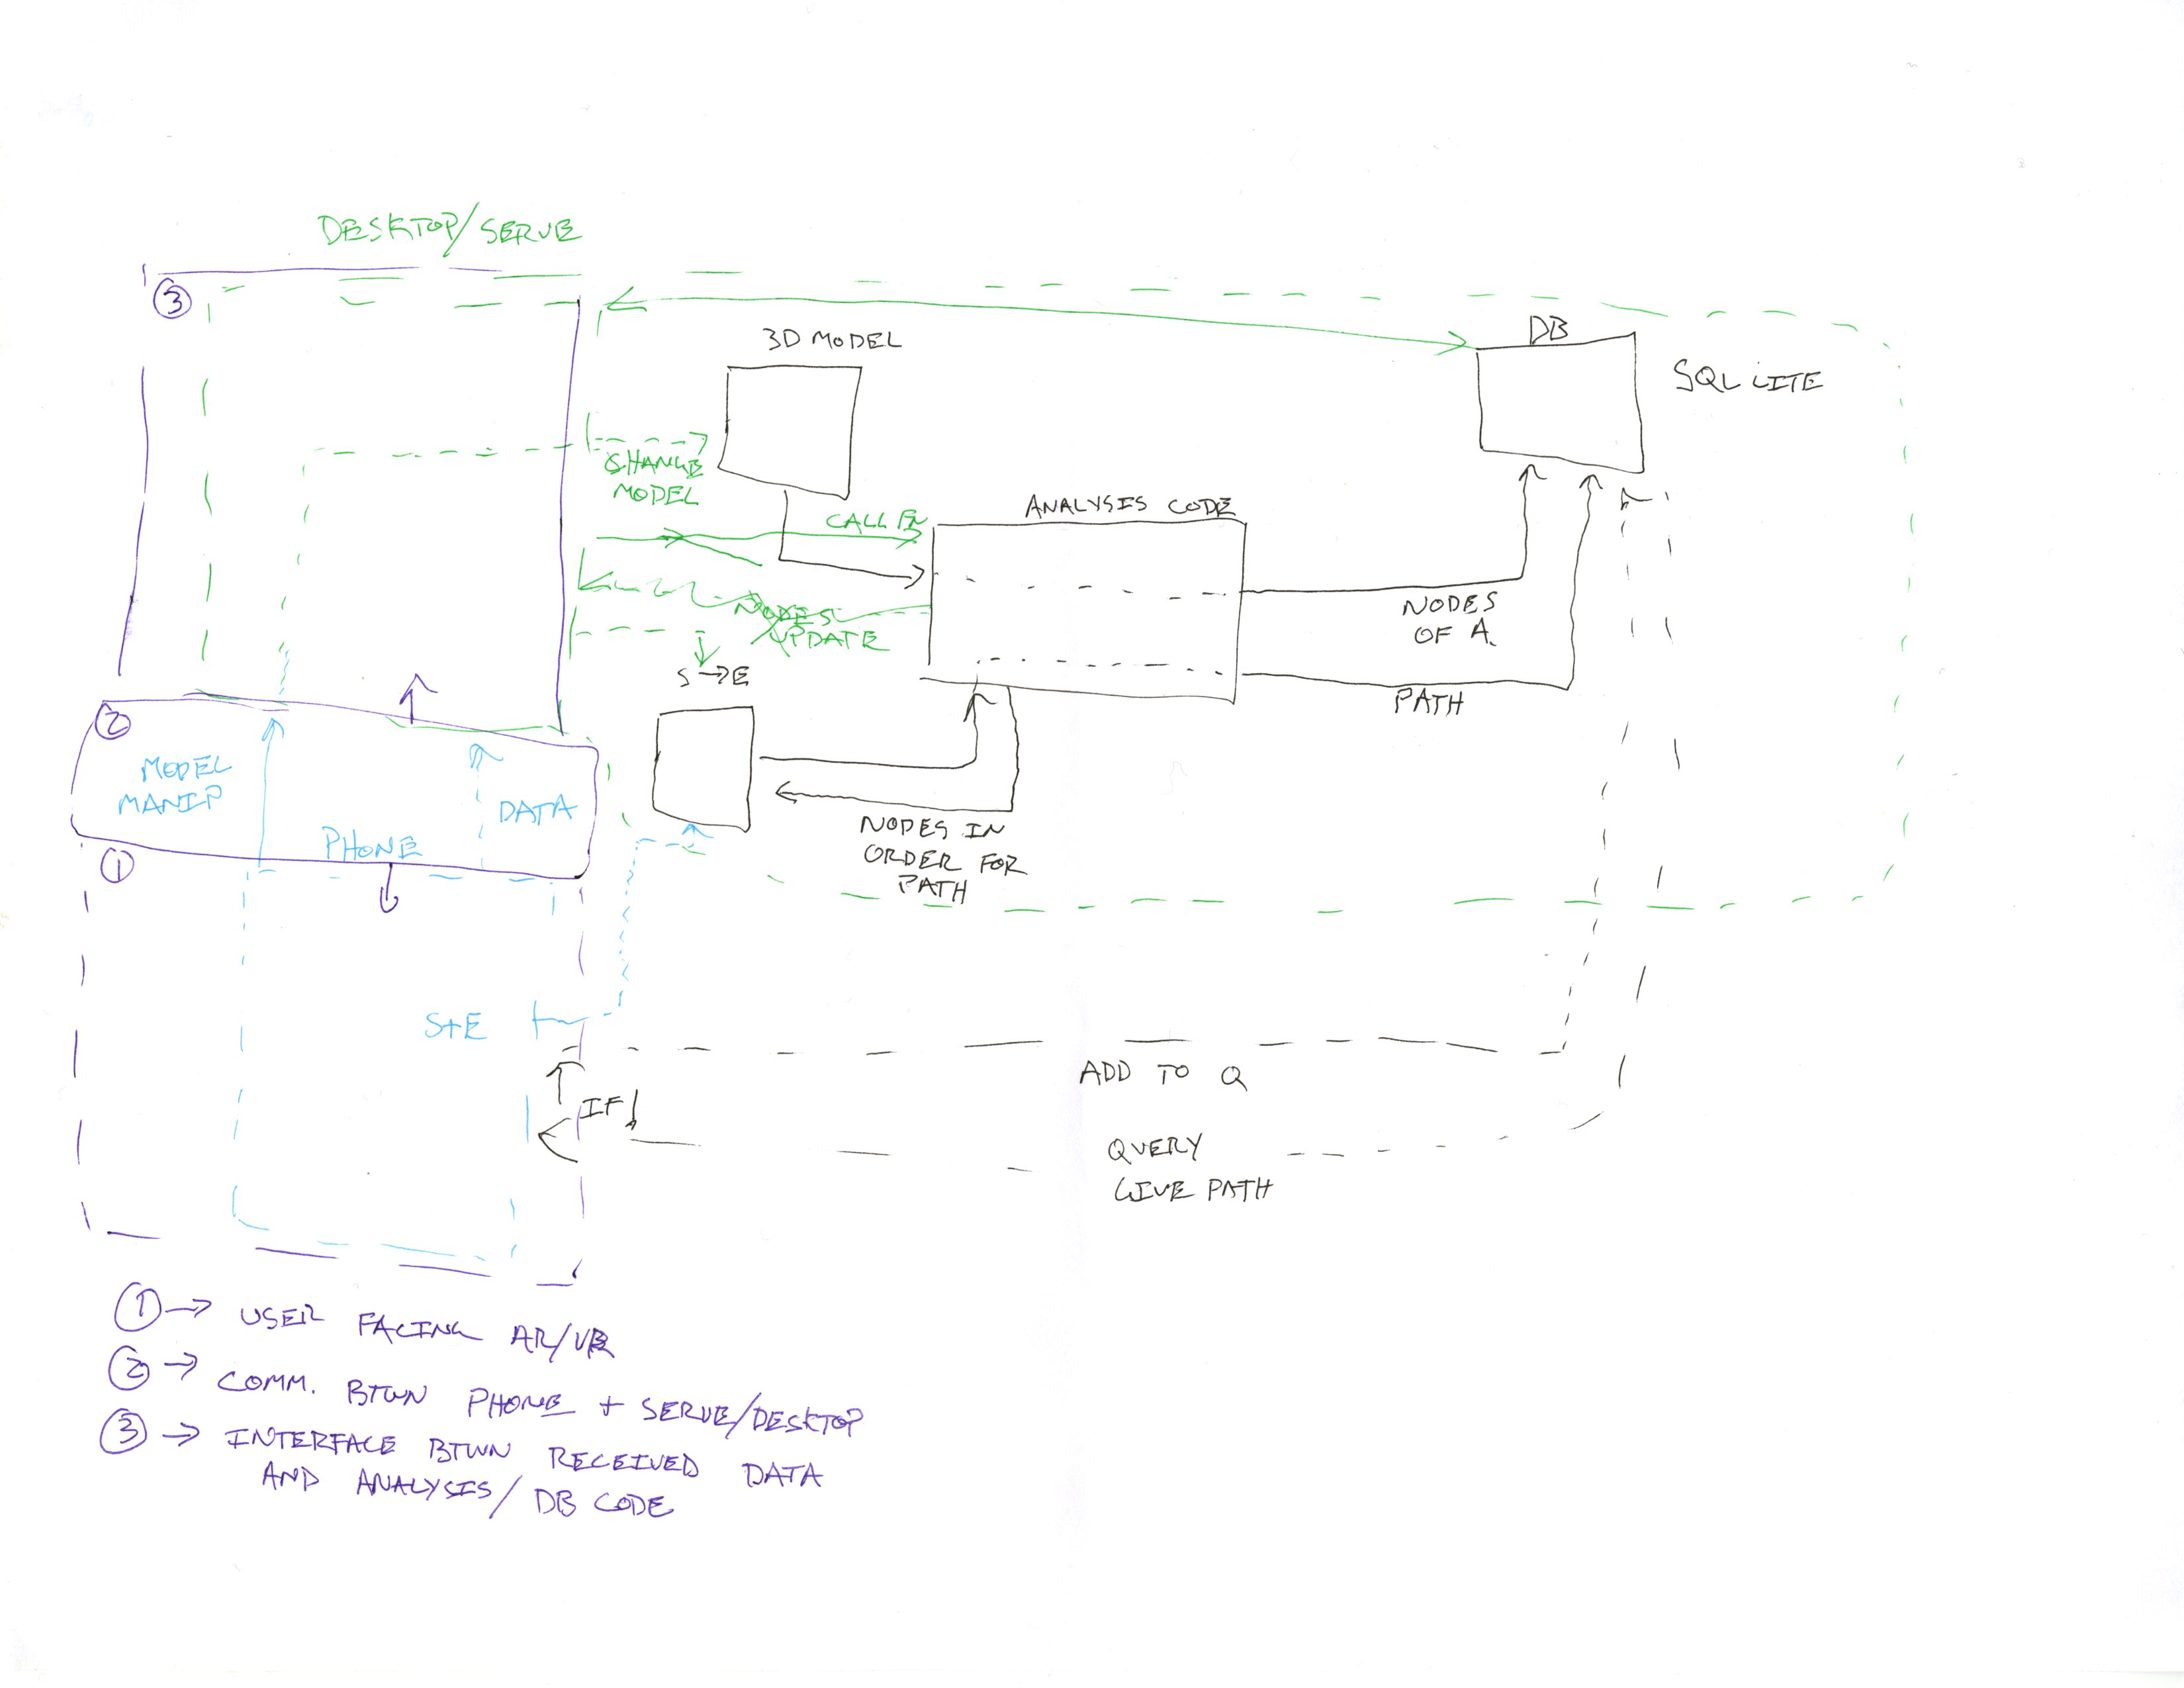 DESKTOP/SERVE
③
3D MODEL
DB
SQL LITE
CHANGE
MODEL
CALL FN
ANALYSIS CODE
NODES
UPDATE
NODES
OF A.
S→E
PATH
②
MODEL
MANIP
DATA
PHONE
①
NODES IN
ORDER FOR
PATH
S+E
ADD TO Q
IF
QUERY
GIVE PATH
① → USER FACING AR/VR
② → COMM. BTWN PHONE + SERVE/DESKTOP
③ → INTERFACE BTWN RECEIVED DATA
AND ANALYSIS/DB CODE